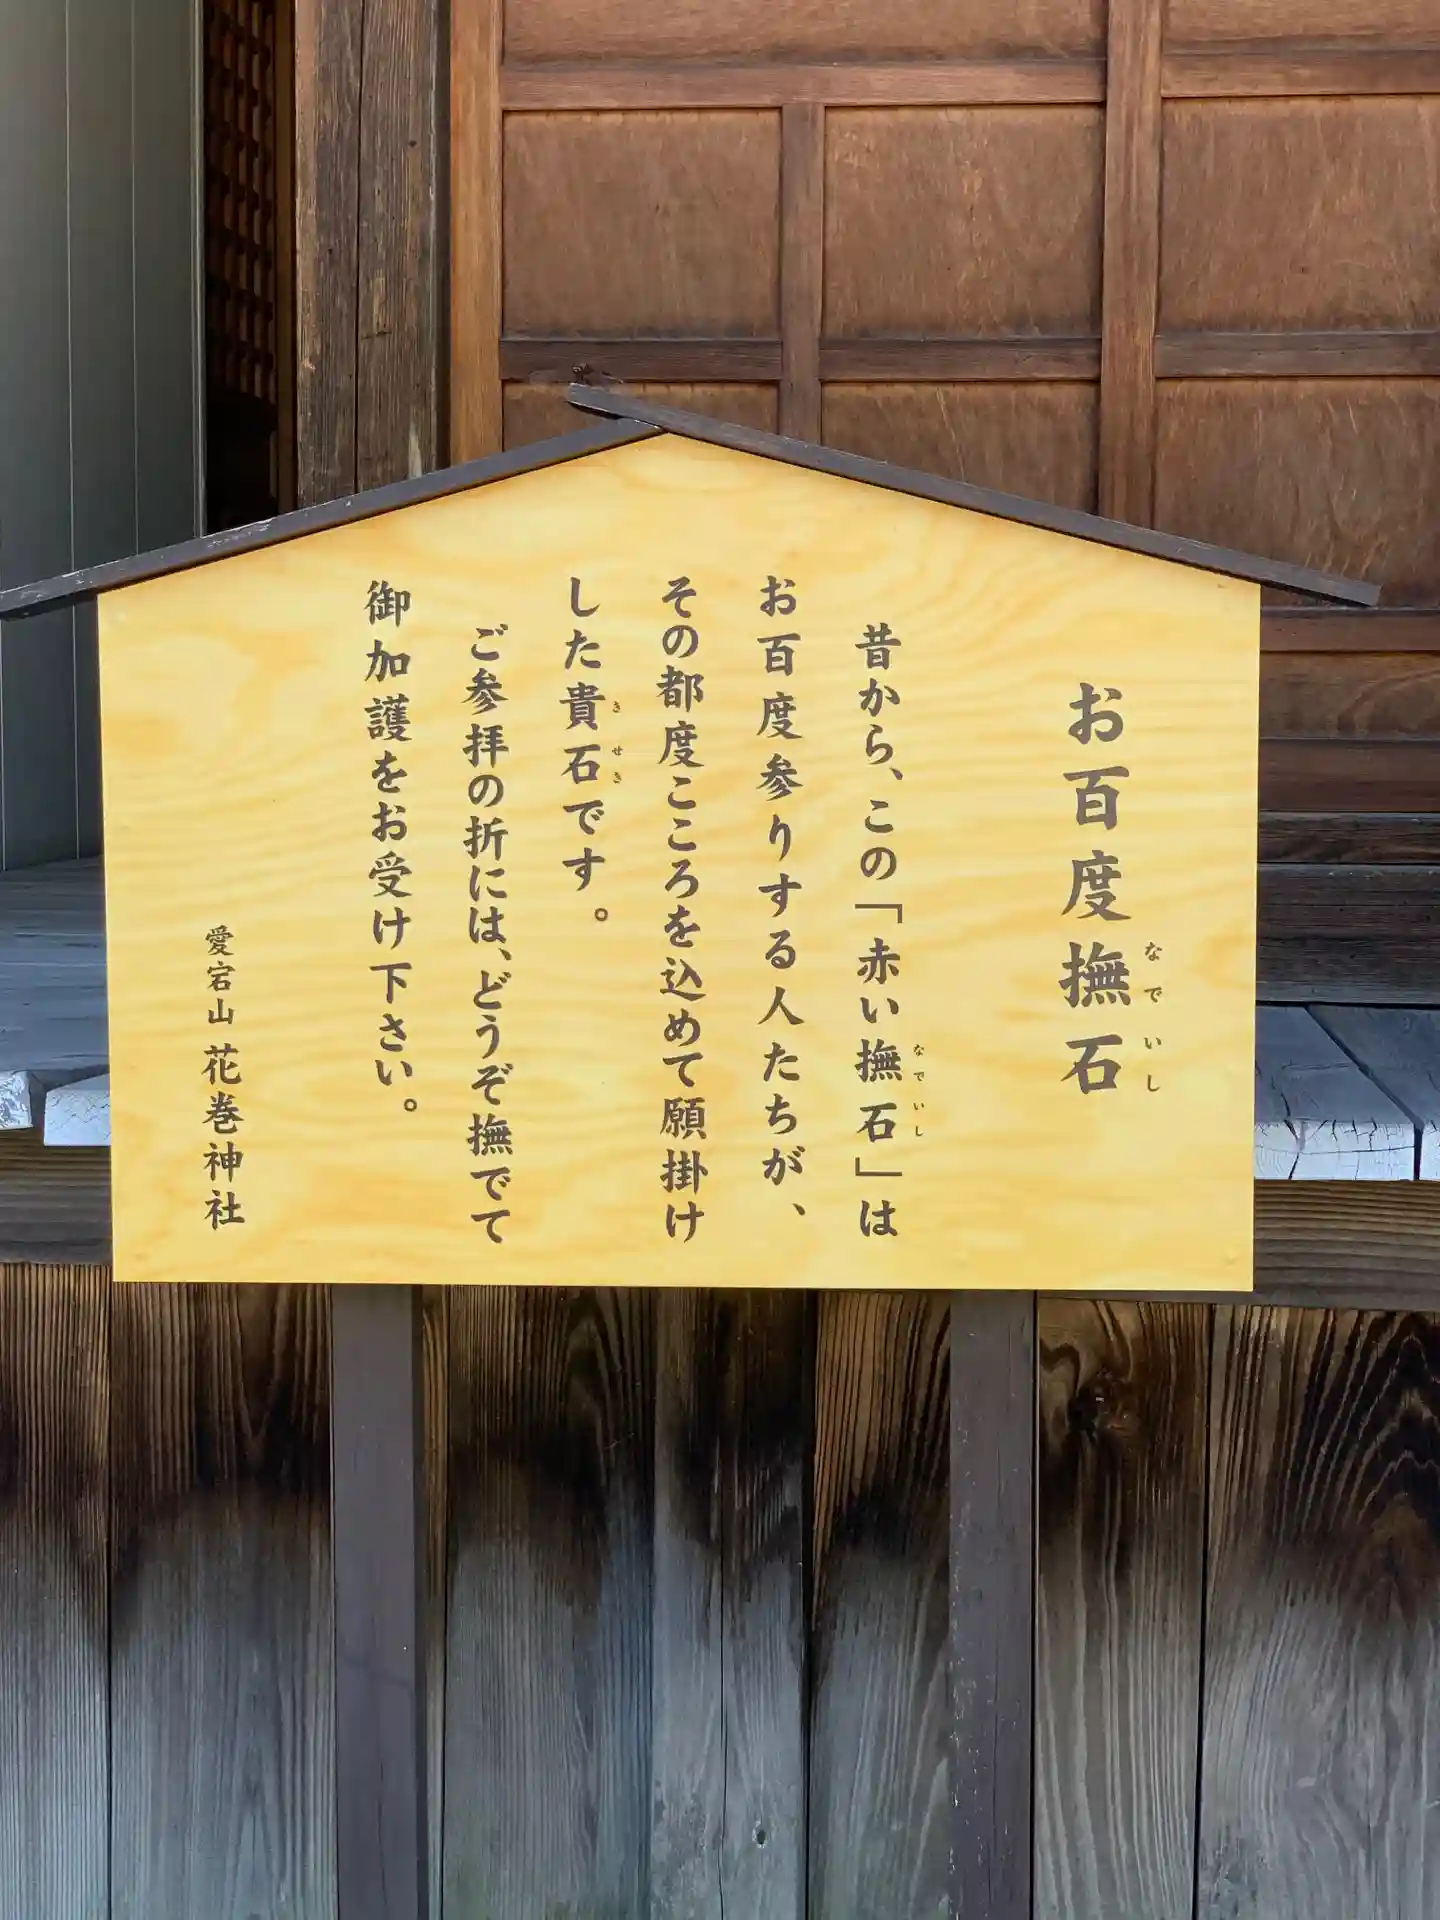 お百度撫石
なでいし
昔から、この「赤い撫石」は
なでいし
お百度参りする人たちが、
その都度こころを込めて願掛け
した貴石です。
きせき
ご参拝の折には、どうぞ撫でて
御加護をお受け下さい。
愛宕山 花巻神社